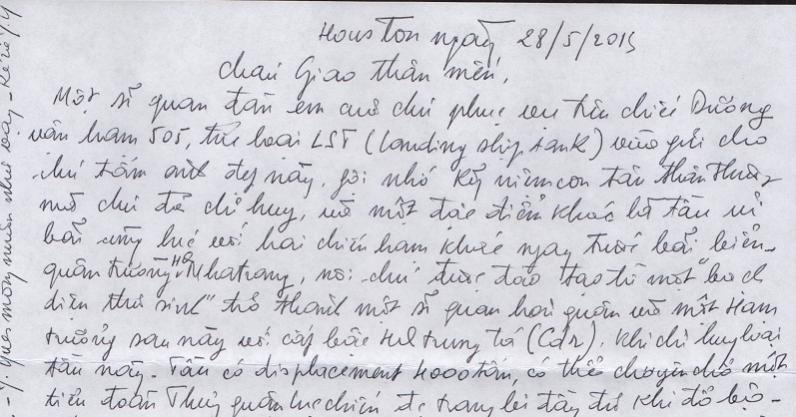 Houston ngày 28/5/2015
cháu Giao thân mến,
Một sĩ quan đàn em cuả chú phục vụ trên chiếc Dương
vân hạm 505, thuộc loại LST (Landing ship tank) vừa gửi cho
chú tấm ảnh đẹp này, gợi nhớ kỷ niệm con tàu thân thương
mà chú đã chỉ huy, và một đặc điểm khác là tàu ủi
bãi cùng lúc với hai chiến hạm khác ngay trước bãi biển
quân trường HQ Nhatrang, nơi chú được đào tạo từ một "bạch
diện thư sinh" trở thành một sĩ quan hải quân và một Hạm
trưởng sau này với cấp bậc HQ trung tá (Cdr), khi chỉ huy loại
tàu này. Tàu có displacement 4000 tấn, có thể chuyên chở một
tiểu đoàn Thuỷ quân lục chiến được trang bị đầy đủ khi đổ bộ -